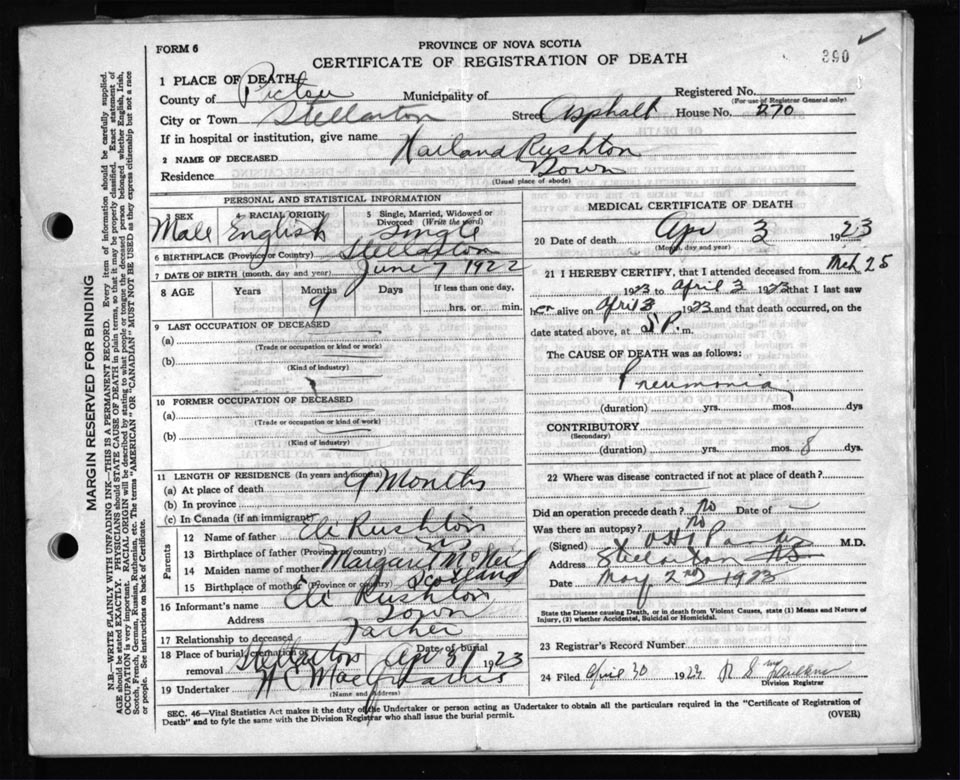 FORM 6
PROVINCE OF NOVA SCOTIA
CERTIFICATE OF REGISTRATION OF DEATH
390
1 PLACE OF DEATH
County of Pictou Municipality of Registered No.
(For use of Registrar General only)
City or Town Stellarton Street Asphalt House No. 270
If in hospital or institution, give name
2 NAME OF DECEASED Harland Rushton
Residence Town
(Usual place of abode)
PERSONAL AND STATISTICAL INFORMATION
3 SEX Male
4 RACIAL ORIGIN English
5 Single, Married, Widowed or Divorced (Write the word) Single
6 BIRTHPLACE (Province or Country) Stellarton
7 DATE OF BIRTH (month, day and year) June 7 1922
8 AGE Years Months 9 Days If less than one day, hrs. or min.
9 LAST OCCUPATION OF DECEASED
(a)
(Trade or occupation or kind or work)
(b)
(Kind of industry)
10 FORMER OCCUPATION OF DECEASED
(a)
(Trade or occupation or kind or work)
(b)
(Kind of industry)
11 LENGTH OF RESIDENCE (In years and months)
(a) At place of death 9 Months
(b) In province
(c) In Canada (if an immigrant)
Parents
12 Name of father Eli Rushton
13 Birthplace of father (Province or country)
14 Maiden name of mother Margaret McNeil
15 Birthplace of mother (Province or country) Scotland
16 Informant's name Eli Rushton
Address Town
17 Relationship to deceased Father
18 Place of burial, cremation or removal Stellarton Date of burial Apr 5 1923
19 Undertaker
(Name and Address)
MEDICAL CERTIFICATE OF DEATH
20 Date of death Apr 3 1923
(Month, day and year)
21 I HEREBY CERTIFY, that I attended deceased from Mch 25
1923 to April 3 1923 that I last saw
her alive on April 3 1923 and that death occurred, on the
date stated above, at 5 P. m.
The CAUSE OF DEATH was as follows:
Pneumonia
(duration) yrs. mos. dys
CONTRIBUTORY
(Secondary)
(duration) yrs. mos. 8 dys.
22 Where was disease contracted if not at place of death?
Did an operation precede death? no Date of —
Was there an autopsy? no
(Signed) M.D.
Address Stellarton NS
Date May 2nd 1923
State the Disease causing Death, or in death from Violent Causes, state (1) Means and Nature of
Injury, (2) whether Accidental, Suicidal or Homicidal.
23 Registrar's Record Number
24 Filed April 30 1923
Division Registrar
SEC. 46—Vital Statistics Act makes it the duty of the Undertaker or person acting as Undertaker to obtain all the particulars required in the "Certificate of Registration of
Death" and to fyle the same with the Division Registrar who shall issue the burial permit.
(OVER)
MARGIN RESERVED FOR BINDING
N.B.—WRITE PLAINLY WITH UNFADING INK—THIS IS A PERMANENT RECORD. Every item of information should be carefully supplied.
AGE should be stated EXACTLY. PHYSICIANS should STATE CAUSE OF DEATH in plain terms, so that it may be properly classified. Exact statement of
OCCUPATION is very important. RACIAL ORIGIN will be described by stating to what people or tongue the deceased person belonged whether English, Irish,
Scotch, French, German, Russian, Ruthenian, etc. The terms "AMERICAN" OR "CANADIAN" MUST NOT BE USED as they express citizenship but not a race
or people. See instructions on back of Certificate.